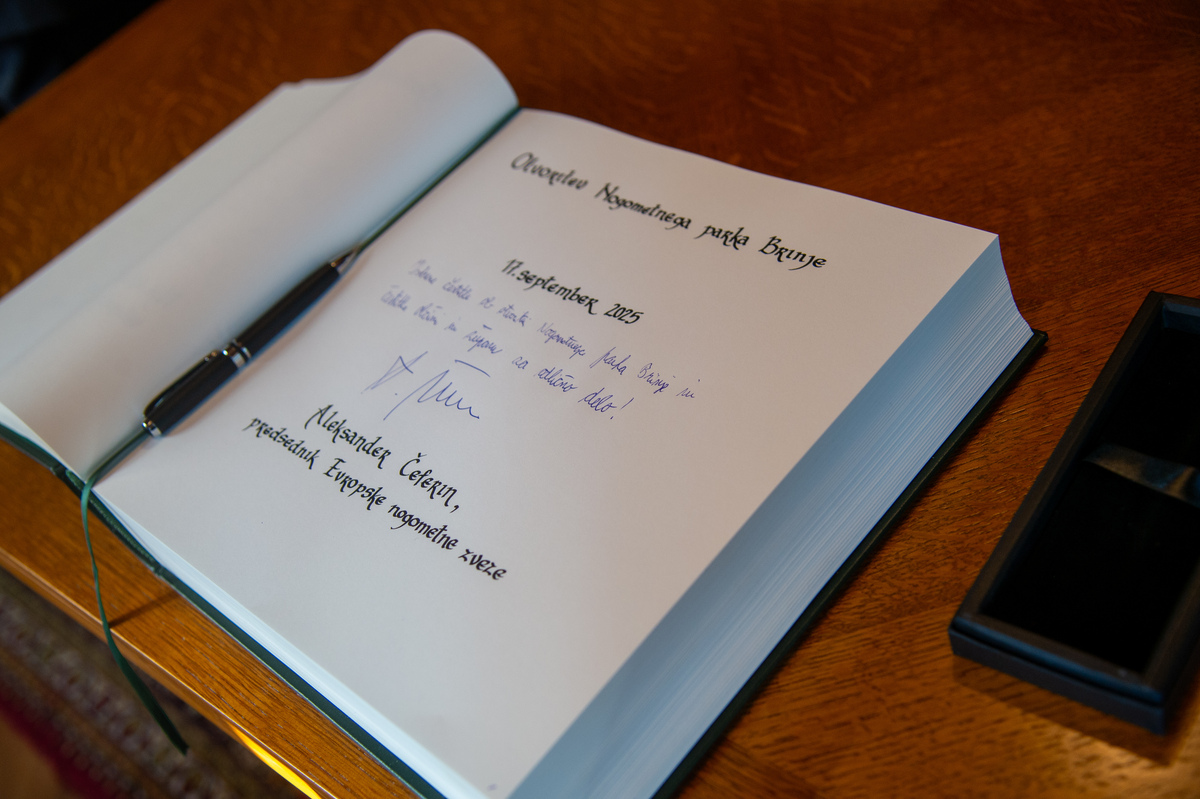 Otvoritev Nogometnega parka Brinje
17. september 2025
ob otvoritvi Nogometnega parka Brinje in
čestitke občini in županu za odlično delo!
Aleksander Čeferin,
predsednik Evropske nogometne zveze